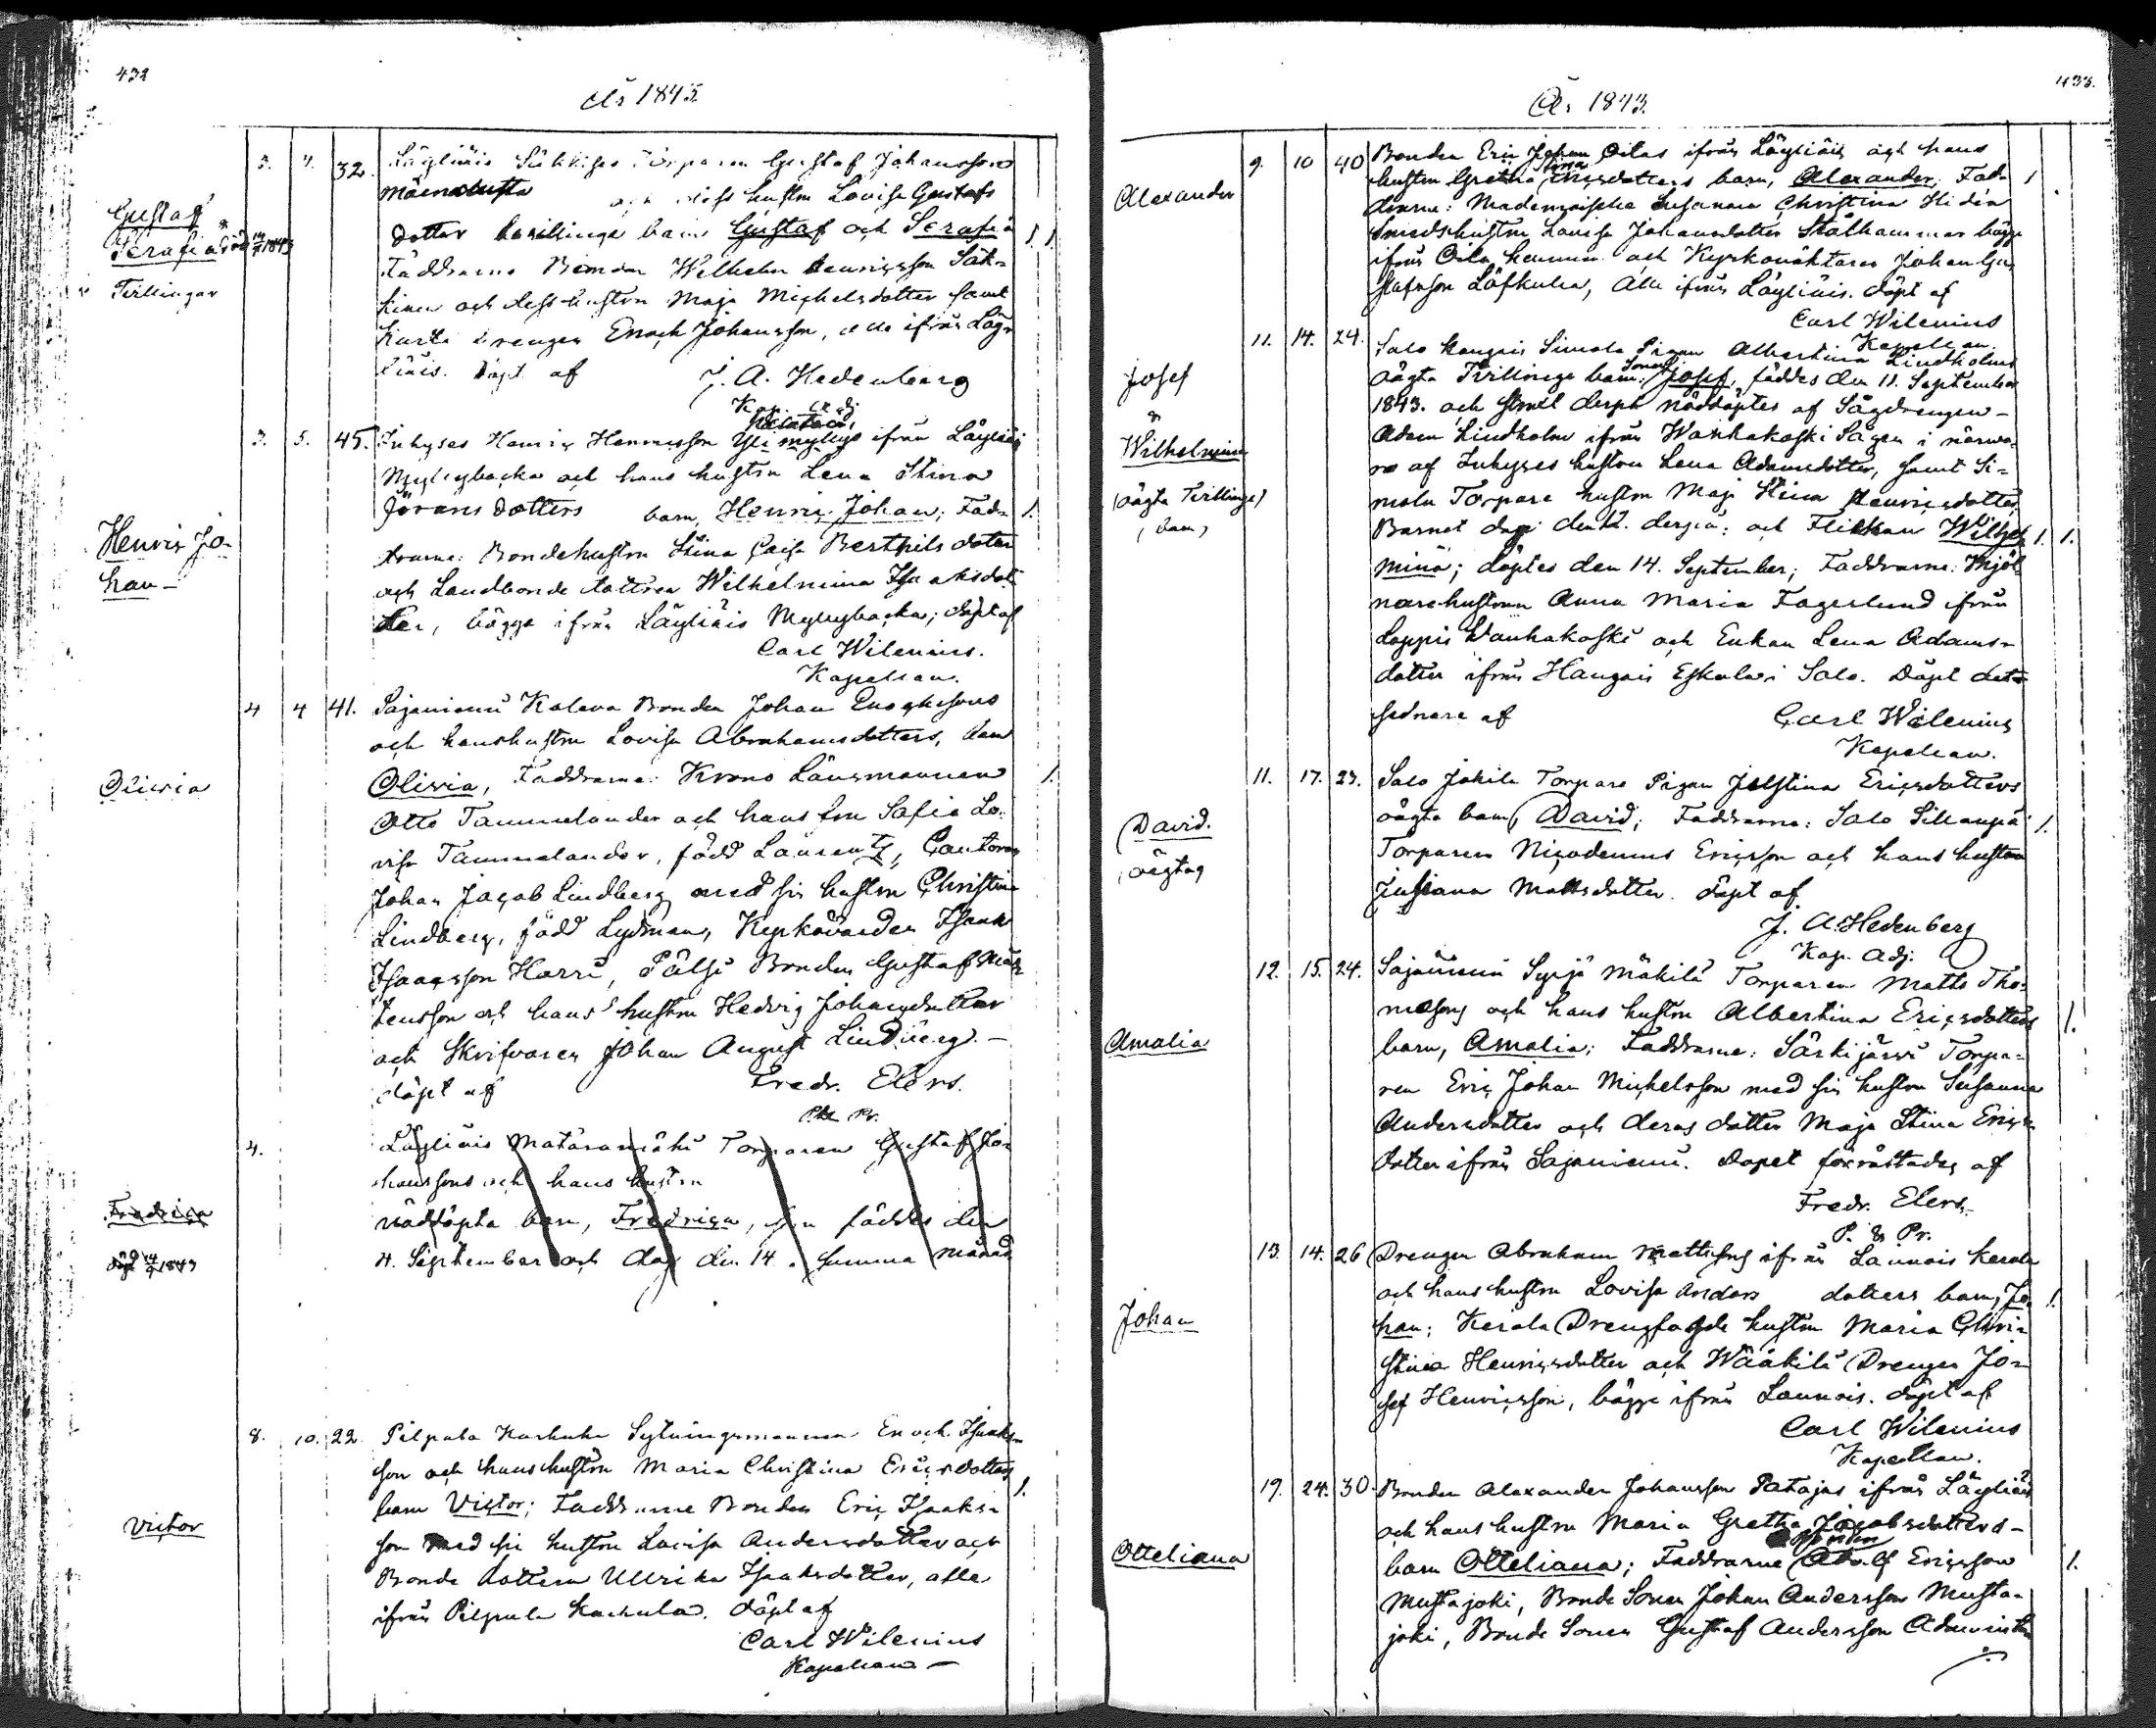 432
År 1843.
3. 4. 32. Läyliäis Torparen Gustaf Johansson
och dess hustru Lovisa Gustafs
Gustaf
&
Serafia
Tvillingar
dotter tvillinge barn Gustaf och Serafia
Faddrarne Bonden Wilhelm Henricsson
och dess hustru Maja Michelsdotter samt
drengen Enoch Johansson, alla ifrån Läy-
liäis. Döpt af J. A. Hedenberg
Kap. Adj.
3. 5. 45. Inhyses Henric Henricsson Yli myllys ifrån Läyliäis
Myllybacka och hans hustru Lena Stina
Jörans dotters barn, Henric Johan; Fad-
Henric Jo-
han
drarne: Bondehustru Stina Caisa Berthils dotter
och Landbonde dottren Wilhelmina Isaaksdot-
ter, bägge ifrån Läyliäis Myllybacka; döpt af
Carl Wilenius.
Kapellan.
4 4 41. Sajaniemi Kaleva Bonden Johan Enochssons
och hans hustru Lovisa Abrahamsdotters, barn
Olivia
Olivia, Faddrarne: Krono Länsmannen
Otto Tammelander och hans fru Sofia Lo-
visa Tammelander, född Laurentz, Cantoren
Johan Jacob Lindberg med sin hustru Christina
Lindberg, född Lydman, Kyrkovärden Isaak
Isaacsson Harri, Pälsi Bonden Gustaf Mår-
tensson och hans hustru Hedvig Johansdotter
och Skrifvaren Johan August Lindberg.
döpt af Fredr. Elers.
P. & Pr.
4. Läyliäis Mataramäki Torparen Gustaf Jo-
hanssons och hans hustru
Fredrica
död 14/9 1843
nöddöpta barn, Fredrica, som föddes den
4. September och dog den 14. samma månad
8. 10. 22. Pilpala Karhula Sytningsmannen Enoch Isaaks-
son och hans hustru Maria Christina Ericsdotters
Victor
barn Victor; Faddrarne Bonden Eric Isaaks-
son med sin hustru Lovisa Andersdotter och
Bonde dottern Ullrika Isaaksdotter, alla
ifrån Pilpala Karhula. döpt af
Carl Wilenius
Kapellan
433.
År 1843.
9. 10 40 Bonden Eric Johan Oilas ifrån Läyliäis och hans
Alexander
hustru Gretha Ericsdotters barn, Alexander. Fad-
drarne: Mademoiselle Susanna Christina Hidén
Smedshustru Lovisa Johansdotter Stålhammar bägge
ifrån Oila hemman och Kyrkovaktaren Johan Gu-
stafsson Löfkulla, Alla ifrån Läyliäis. döpt af
Carl Wilenius
Kapellan.
11. 14. 24. Salo Haugais Simola Pigan Albertina Lindholms
Josef
&
Wilhelmina
(oägta Tvillinge
barn)
oägta Tvillinge barn: Sonen Josef, föddes den 11. September
1843. och strax derpå nöddöptes af Sågdrengen
Adam Lindholm ifrån Wanhakoski Sågen i närwa-
ro af Inhyses hustru Lena Adamsdotter, samt Si-
mola Torpare hustru Maja Stina Henricsdotter,
Barnet dog den 12. och Flickan Wilhel-
mina; döptes den 14. September; Faddrarne: Mjöl-
narehustrun Anna Maria Fagerlund ifrån
Loppis Wanhakoski och Enkan Lena Adams-
dotter ifrån Haugais Eskola i Salo. Döpt det
sednare af Carl Wilenius
Kapellan.
11. 17. 23. Salo Jokila Torpare Pigan Justina Ericsdotters
David.
(oägta)
oägta barn, David; Faddrarne: Salo Sillanpä
Torparen Nicodemus Ericsson och hans hustru
Juliana Mattsdotter. döpt af
J. A. Hedenberg
Kap. Adj.
12. 15. 24. Sajaniemi Syrjä Mäkilä Torparen Matts Tho-
massons och hans hustru Albertina Ericsdotters
Amalia
barn, Amalia; Faddrarne: Särkijärvi Torpa-
ren Eric Johan Michelsson med sin hustru Susanna
Andersdotter och deras dotter Maja Stina Erics-
dotter ifrån Sajaniemi. Dopet förrättades af
Fredr. Elers.
P. & Pr.
13. 14. 26 Drengen Abraham Mattssons ifrån Launois Kerola
och hans hustru Lovisa Anders dotters barn, Jo-
Johan
han; Kerola Drengfogde hustru Maria Chri-
stina Henricsdotter och Wääkilä Drengen Jo-
sef Henricsson, bägge ifrån Launois. döpt af
Carl Wilenius
Kapellan.
19. 24. 30. Bonden Alexander Johansson Patajas ifrån Läyliäis
och hans hustru Maria Gretha Jacobsdotters
Otteliana
barn Otteliana; Faddrarne Adolf Ericsson
Mustajoki, Bonde Sonen Johan Andersson Musta-
joki, Bonde Sonen Gustaf Andersson